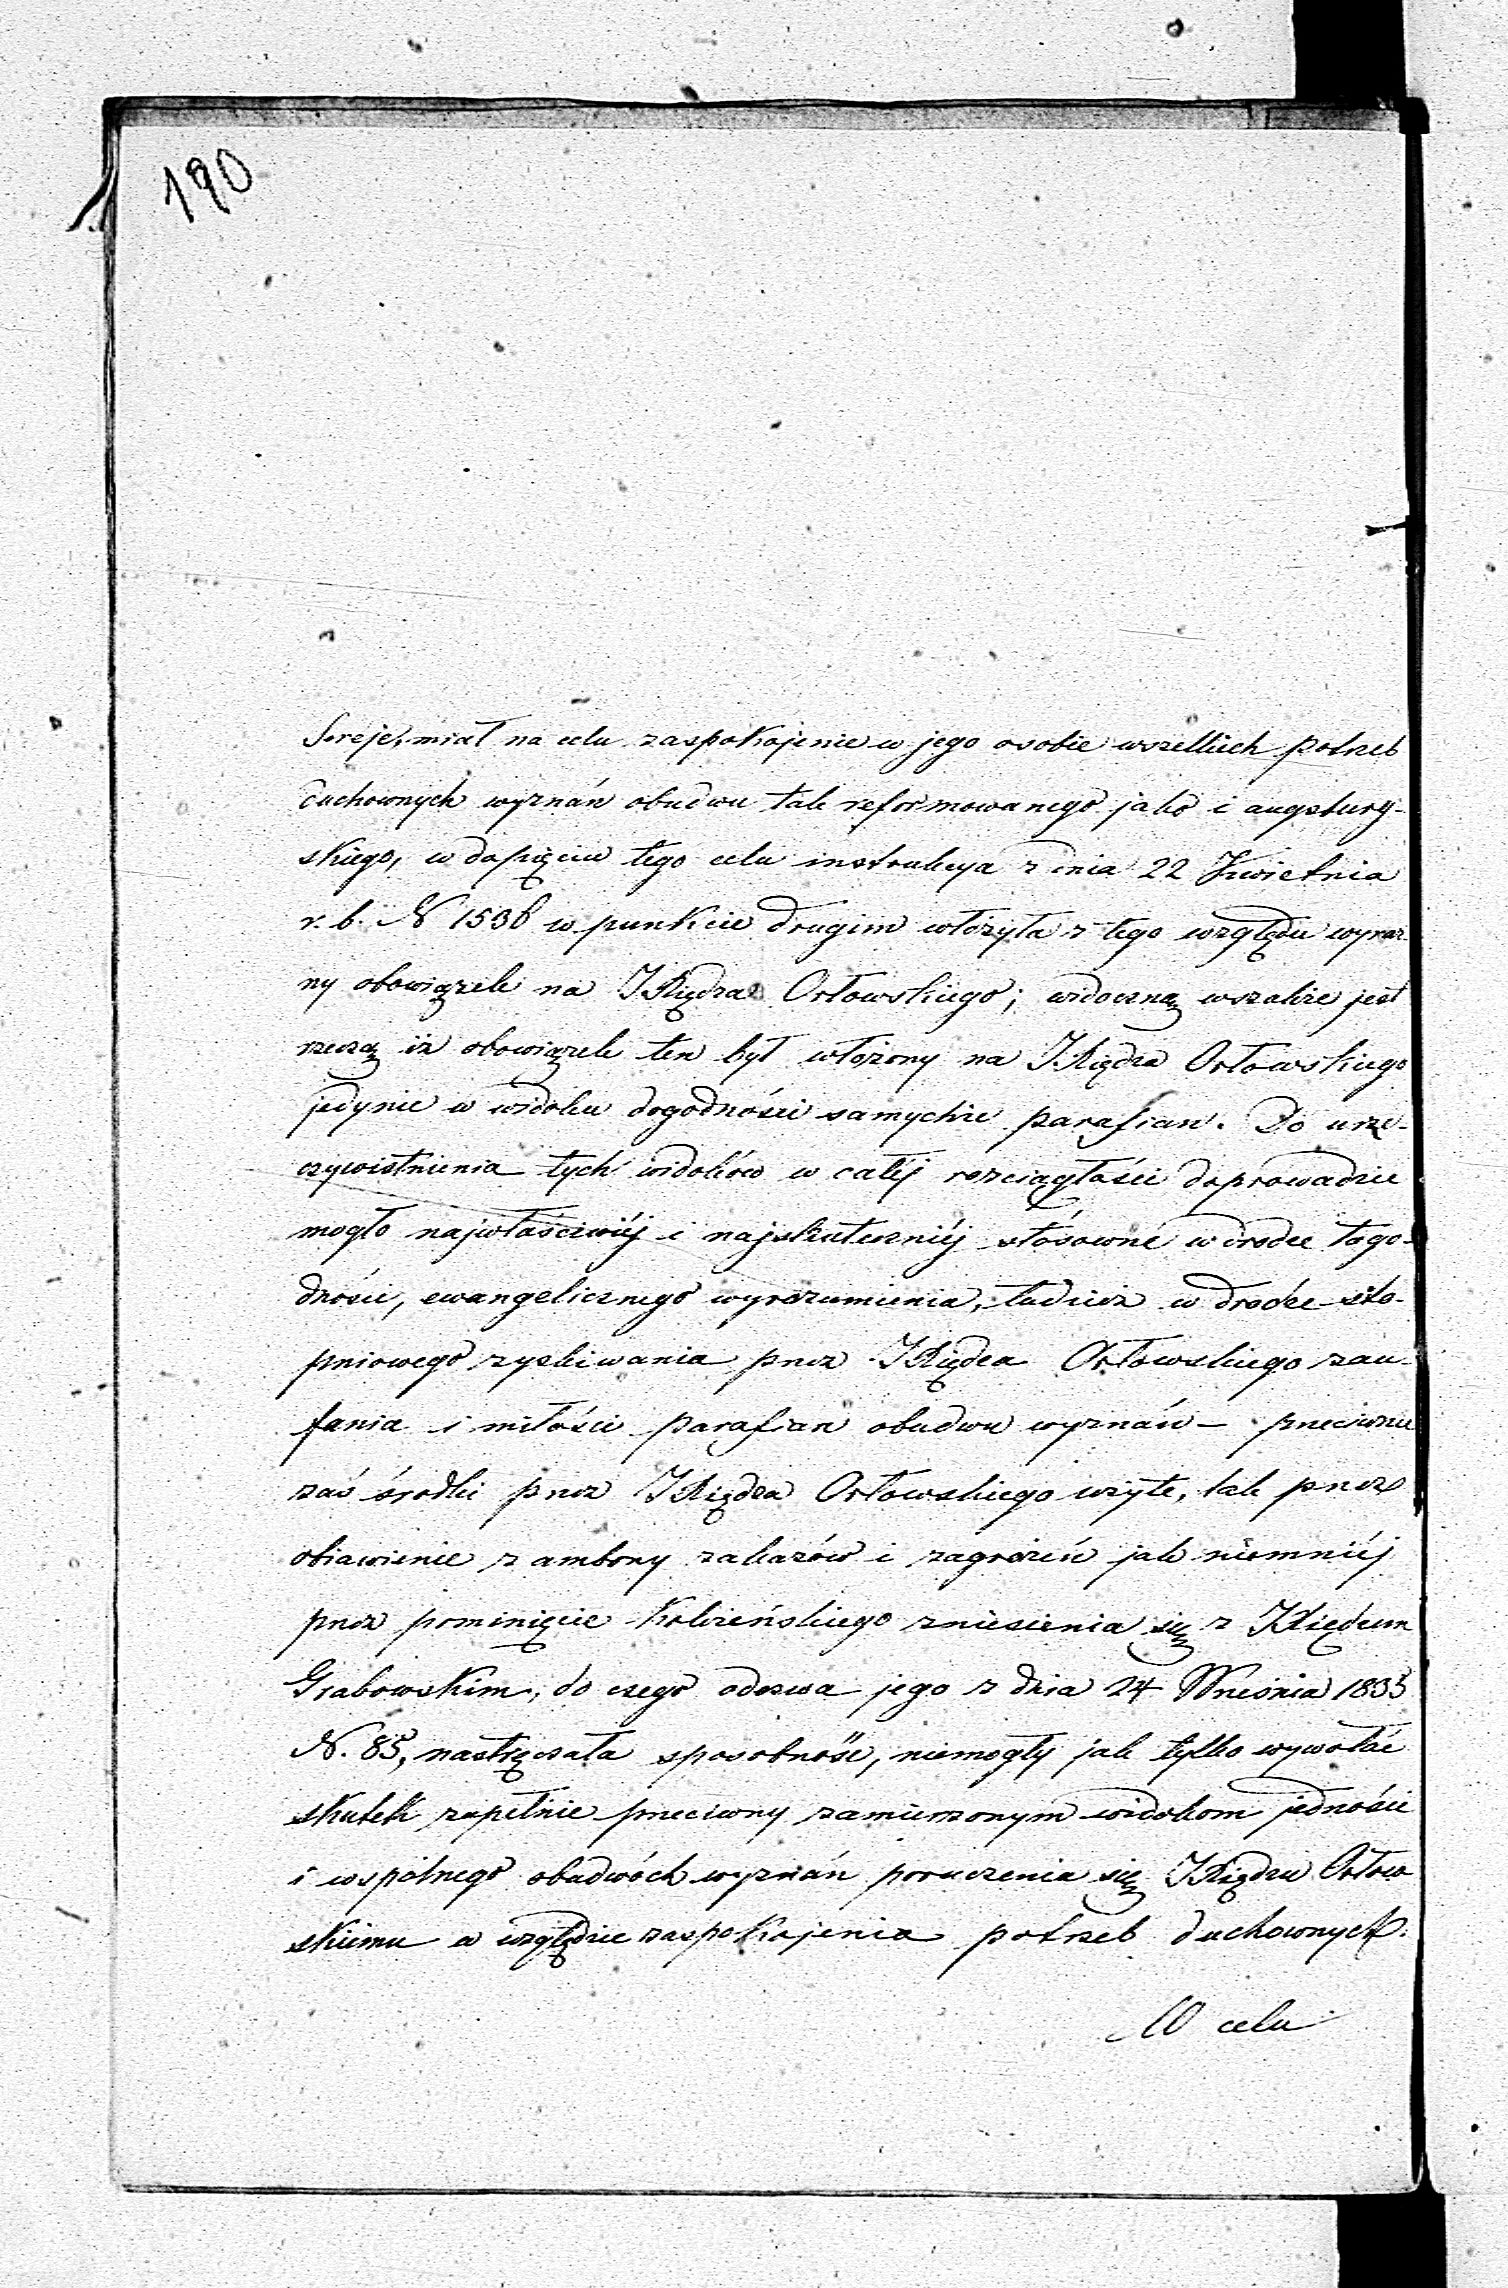 190
Sereje, miał na celu zaspokojenie w jego osobie wszelkich potrzeb
duchownych wyznań obudwu tak reformowanego jako i augsburg-
skiego, w dopięciu tego celu instrukcya z dnia 22 Kwietnia
r. b. N 1536 w punkcie drugim włożyła z tego względu wyraź-
ny obowiązek na JXiędza Orłowskiego; widoczną wszakże jest
rzeczą iż obowiązek ten był włożony na JXiędza Orłowskiego
jedynie w widoku dogodności samychże parafian. Do urze-
czywistnienia tych widoków w całéj rozciągłości doprowadzić
mogło najwłaściwiéj i najskuteczniéj stósowne w drodze łago-
dności, ewangelicznego wyrozumienia, tudzież w drodze sto-
pniowego zyskiwania przez JXiędza Orłowskiego zau-
fania i miłości parafian obudwu wyznań – przeciwne
zaś środki przez JXiędza Orłowskiego użyte, tak przez
obiawienie z ambony zakazów i zagrożeń jak niemniéj
przez pominięcie Koleżeńskiego zniesienia się z JXiędzem
Grabowskim, do czego odezwa jego z dnia 24 Września 1835
N. 85, nastręczała sposobność, niemogły jak tylko wywołać
skutek zupełnie przeciwny zamierzonym widokom jedności
i wspólnego obudwóch wyznań poruczenia się JXiędzu Orłow
skiemu w względzie zaspokojenia potrzeb duchownych.
W celu